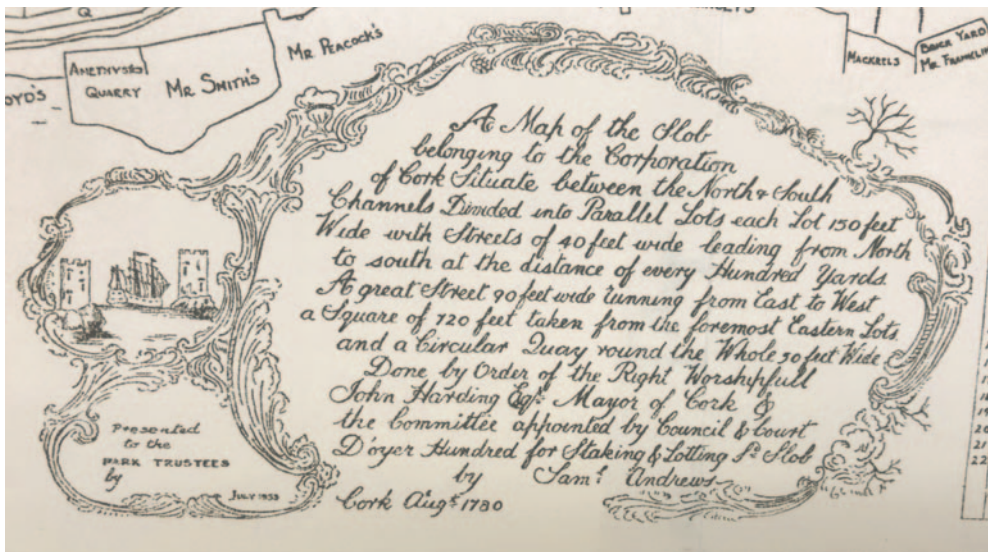 Q
OYD'S
AMETHYSTS
QUARRY
MR SMITH'S
MR PEACOCK'S
MACKRELS
BRICK YARD
MR FRANKLIN
A Map of the Slob
belonging to the Corporation
of Cork Situate between the North & South
Channels Divided into Parallel Lots each Lot 150 feet
Wide with Streets of 40 feet wide leading from North
to south at the distance of every Hundred Yards
A great Street 90 feet wide running from East to West
a Square of 720 feet taken from the foremost Eastern Lots
and a Circular Quay round the Whole 50 feet Wide
Done by Order of the Right Worshipfull
John Harding Esqr. Mayor of Cork &
the Committee appointed by Council & Court
D'oyer Hundred for Staking & Lotting sd. Slob
by Saml. Andrews
Cork Augst. 1780
Presented
to the
PARK TRUSTEES
by
JULY 1953
19
20
21
22